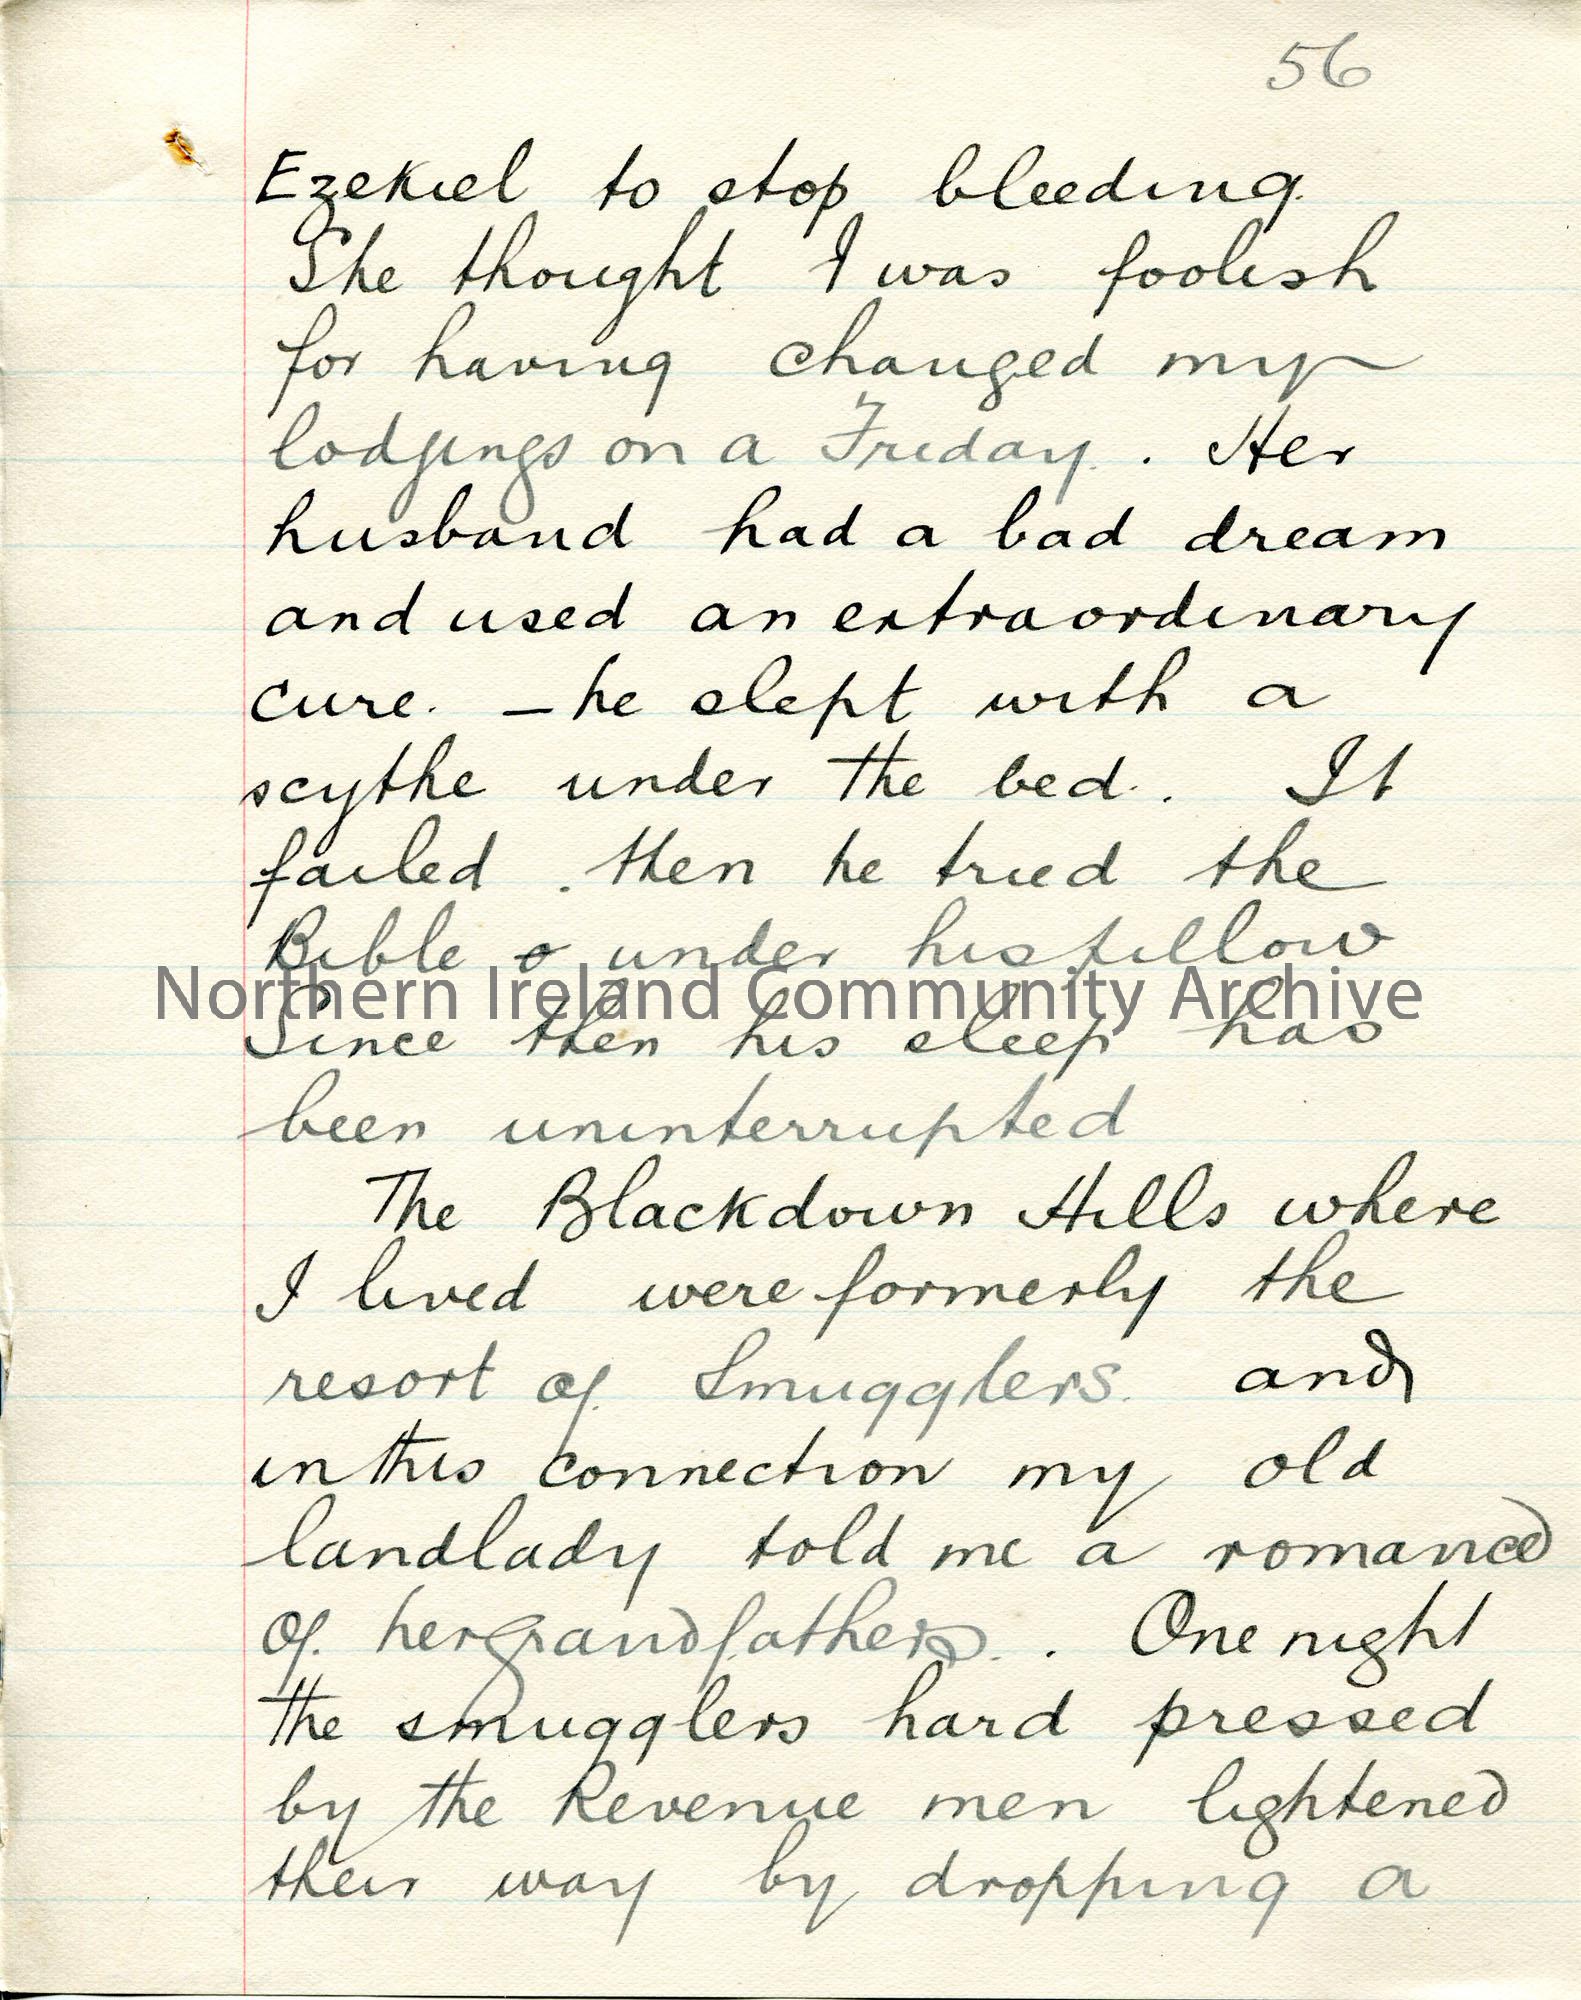 56
Ezekiel to stop bleeding.
She thought I was foolish
for having changed my
lodgings on a Friday. . Her
husband had a bad dream
and used an extraordinary
cure. – he slept with a
scythe under the bed. . It
failed . then he tried the
Bible under his pillow
Northern Ireland Community Archive
Since then his sleep has
been uninterrupted
The Blackdown Hills where
I lived were formerly the
resort of Smugglers. and
in this connection my old
landlady told me a romance
of her grandfathers. . One night
the smugglers hard pressed
by the Revenue men lightened
their way by dropping a